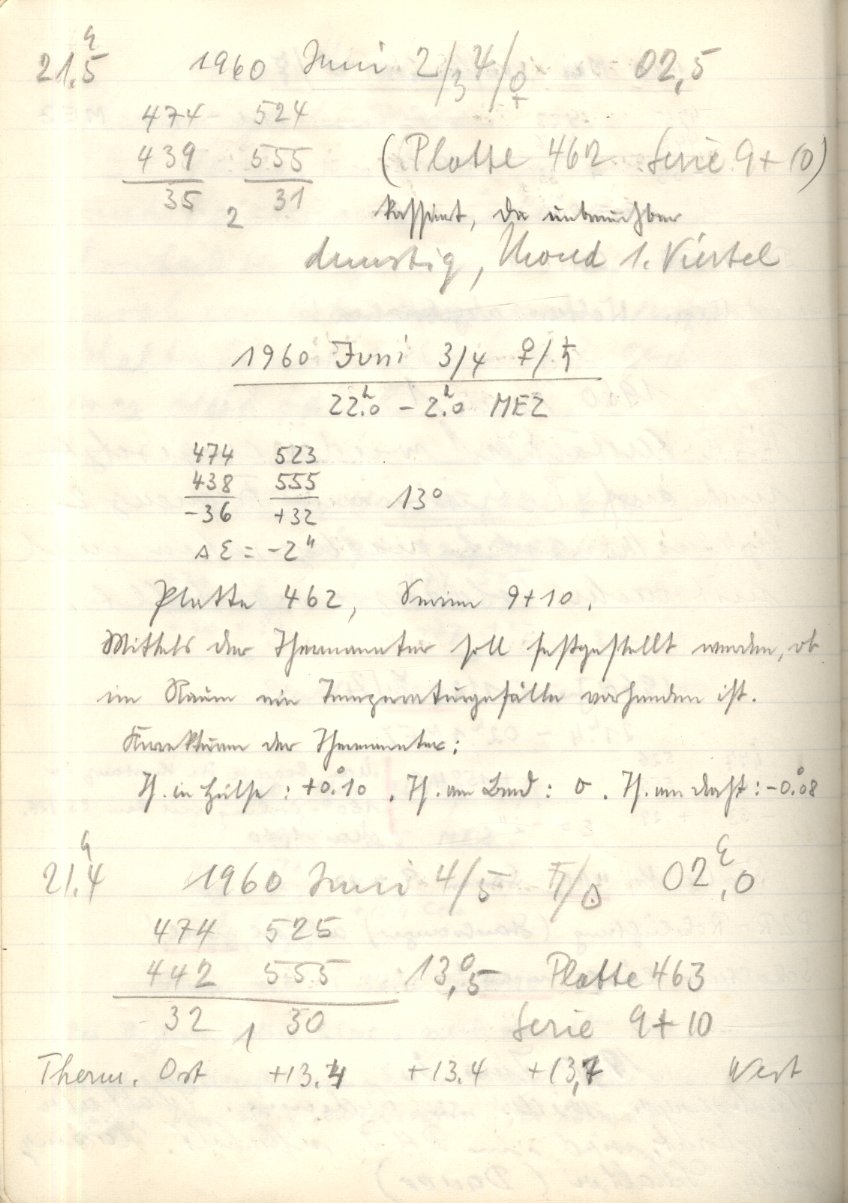 21,5h 1960 Juni 2/3 ♃/♀ 02,5
474 524
439 555 (Platte 462 Serie 9+10)
35 2 31 kassiert, da unbrauchbar
dunstig, Mond 1. Viertel
1960 Juni 3/4 ♀/♄
22h.0 – 2h.0 MEZ
474 523
438 555 13°
-36 +32
Δ Σ = -2"
Platte 462, Serien 9+10.
Mittels der Thermometer soll festgestellt werden, ob
im Raum ein Temperaturgefälle vorhanden ist.
Korrekturen der Thermometer:
Th. in Hülse : +0°.10 . Th. am Bord : 0 . Th. am Draht : -0°.08
21,4h 1960 Juni 4/5 ♄/☉ 02h,0
474 525
442 555 13°,5 Platte 463
32 1 30 Serie 9+10
Therm. Ost +13.4 +13.4 +13,7 West